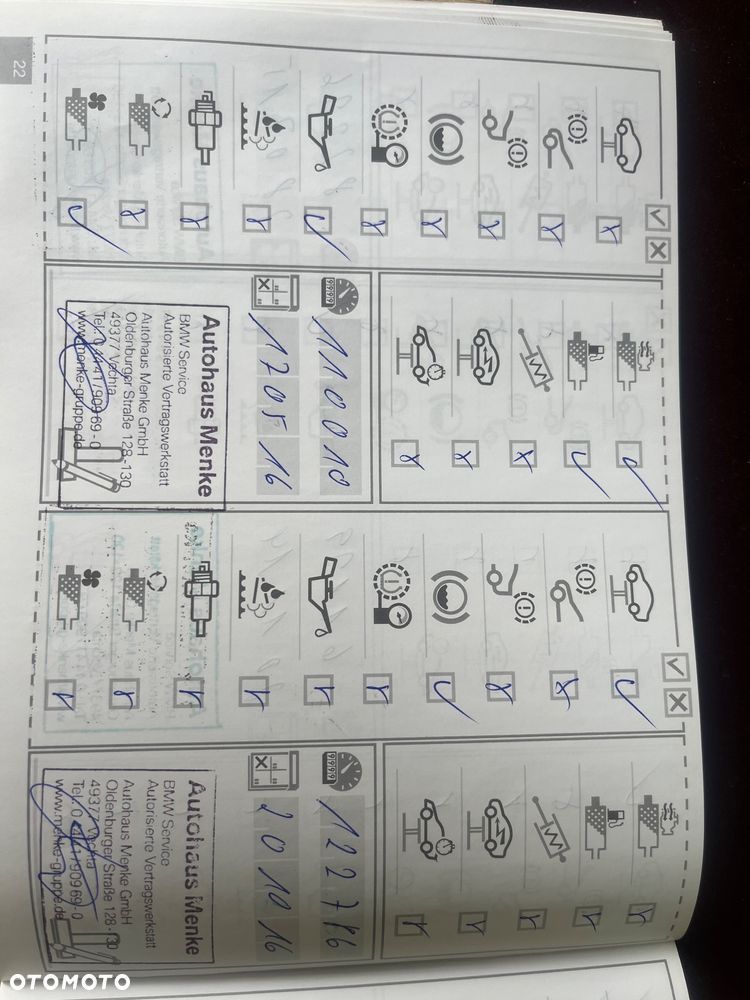 22
110010
170516
Autohaus Menke
BMW Service
Autorisierte Vertragswerkstatt
Autohaus Menke GmbH
Oldenburger Straße 128-130
49377 Vechta
Tel. 0 44 41/9 09 69-0
www.menke-gruppe.de
122786
201016
Autohaus Menke
BMW Service
Autorisierte Vertragswerkstatt
Autohaus Menke GmbH
Oldenburger Straße 128-130
49377 Vechta
Tel. 0 44 41/9 09 69-0
www.menke-gruppe.de
OTOMOTO